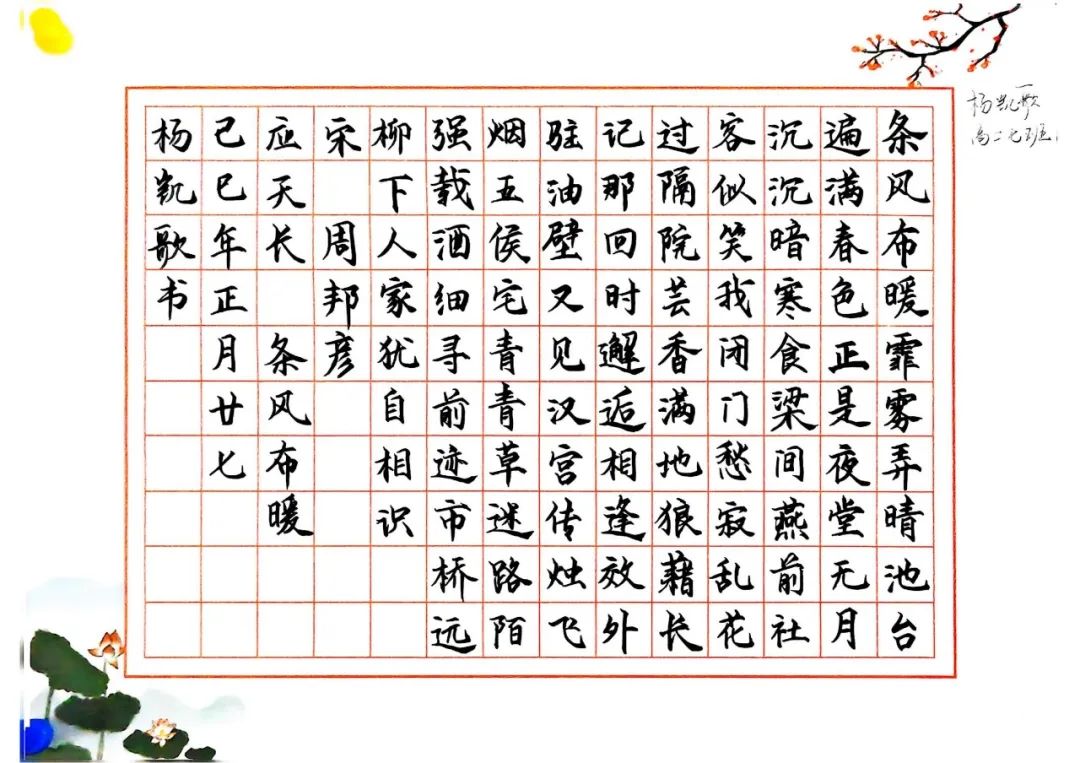 杨凯歌
高二七班
条风布暖霏雾弄晴池台
遍满春色正是夜堂无月
沉沉暗寒食梁间燕前社
客似笑我闭门愁寂乱花
过隔院芸香满地狼藉长
记那回时邂逅相逢效外
驻油壁又见汉宫传烛飞
烟五侯宅青青草迷路陌
强载酒细寻前迹市桥远
柳下人家犹自相识
宋 周邦彦
应天长 条风布暖
己巳年正月廿七
杨凯歌书